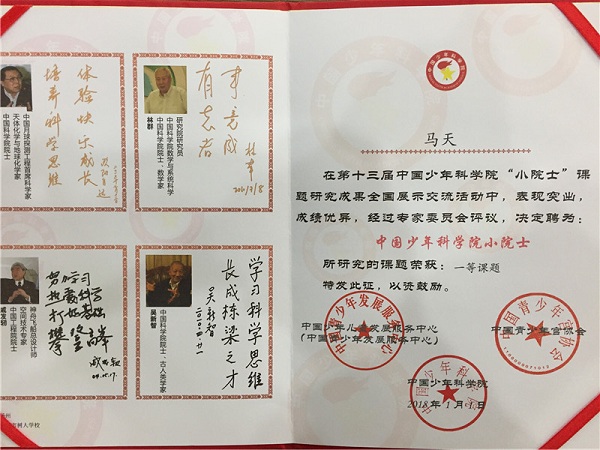 体验快乐成长
培养科学思维
欧阳自远
中国科学院院士
天体化学与地球化学家
中国月球探测工程首席科学家
有志者
事竟成
林群
林群
中国科学院院士、数学家
中国科学院数学与系统科学
研究院研究员
努力学习
攀高峰
戚发轫
戚发轫
中国工程院院士
空间技术专家
神舟飞船总设计师
学习科学思维
长成栋梁之才
吴新智
吴新智
中国科学院院士、古人类学家
树人学校
中国少年科学院
马天
在第十三届中国少年科学院“小院士”课
题研究成果全国展示交流活动中，表现突出，
成绩优异，经过专家委员会评议，决定聘为：
中国少年科学院小院士
所研究的课题荣获：一等课题
特发此证，以资鼓励。
中国少年儿童发展服务中心
（中国青少年发展服务中心）
中国青少年宫协会
中国少年科学院
2018年1月